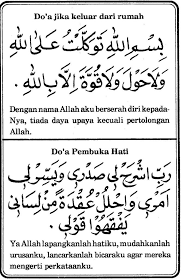 Do'a jika keluar dari rumah
بِسْمِ اللهِ تَوَكَّلْتُ عَلَى اللهِ
وَلَاحَوْلَ وَلَاقُوَّةَ اِلَّابِاللهِ.
Dengan nama Allah aku berserah diri kepada-
Nya, tiada daya upaya kecuali pertolongan
Allah.
Do'a Pembuka Hati
رَبِّ اشْرَحْ لِى صَدْرِى وَيَسِّرْ لِى
اَمْرِى وَاحْلُلْ عُقْدَةً مِنْ لِسَانِى
يَفْقَهُوْا قَوْلِى.
Ya Allah lapangkanlah hatiku, mudahkanlah
urusanku, lancarkanlah bicaraku agar mereka
mengerti perkataanku.